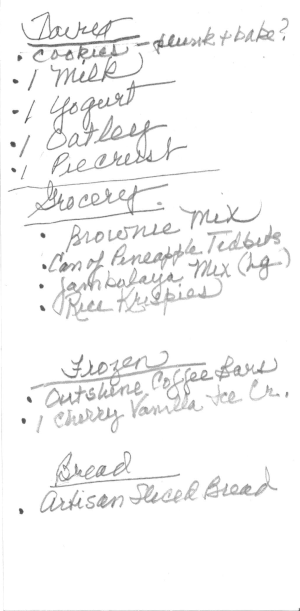 Dairy
• Cookies - plunk + bake?
• 1 Milk
• 1 Yogurt
• 1 Oatley
• 1 Piecrust
Grocery
• Brownie Mix
• Can of Pineapple Tidbits
• Jambalaya Mix (lg.)
• Rice Krispies
Frozen
• Outshine Coffee Bars
• 1 Cherry Vanilla Ice Cr.
Bread
• Artisan Sliced Bread